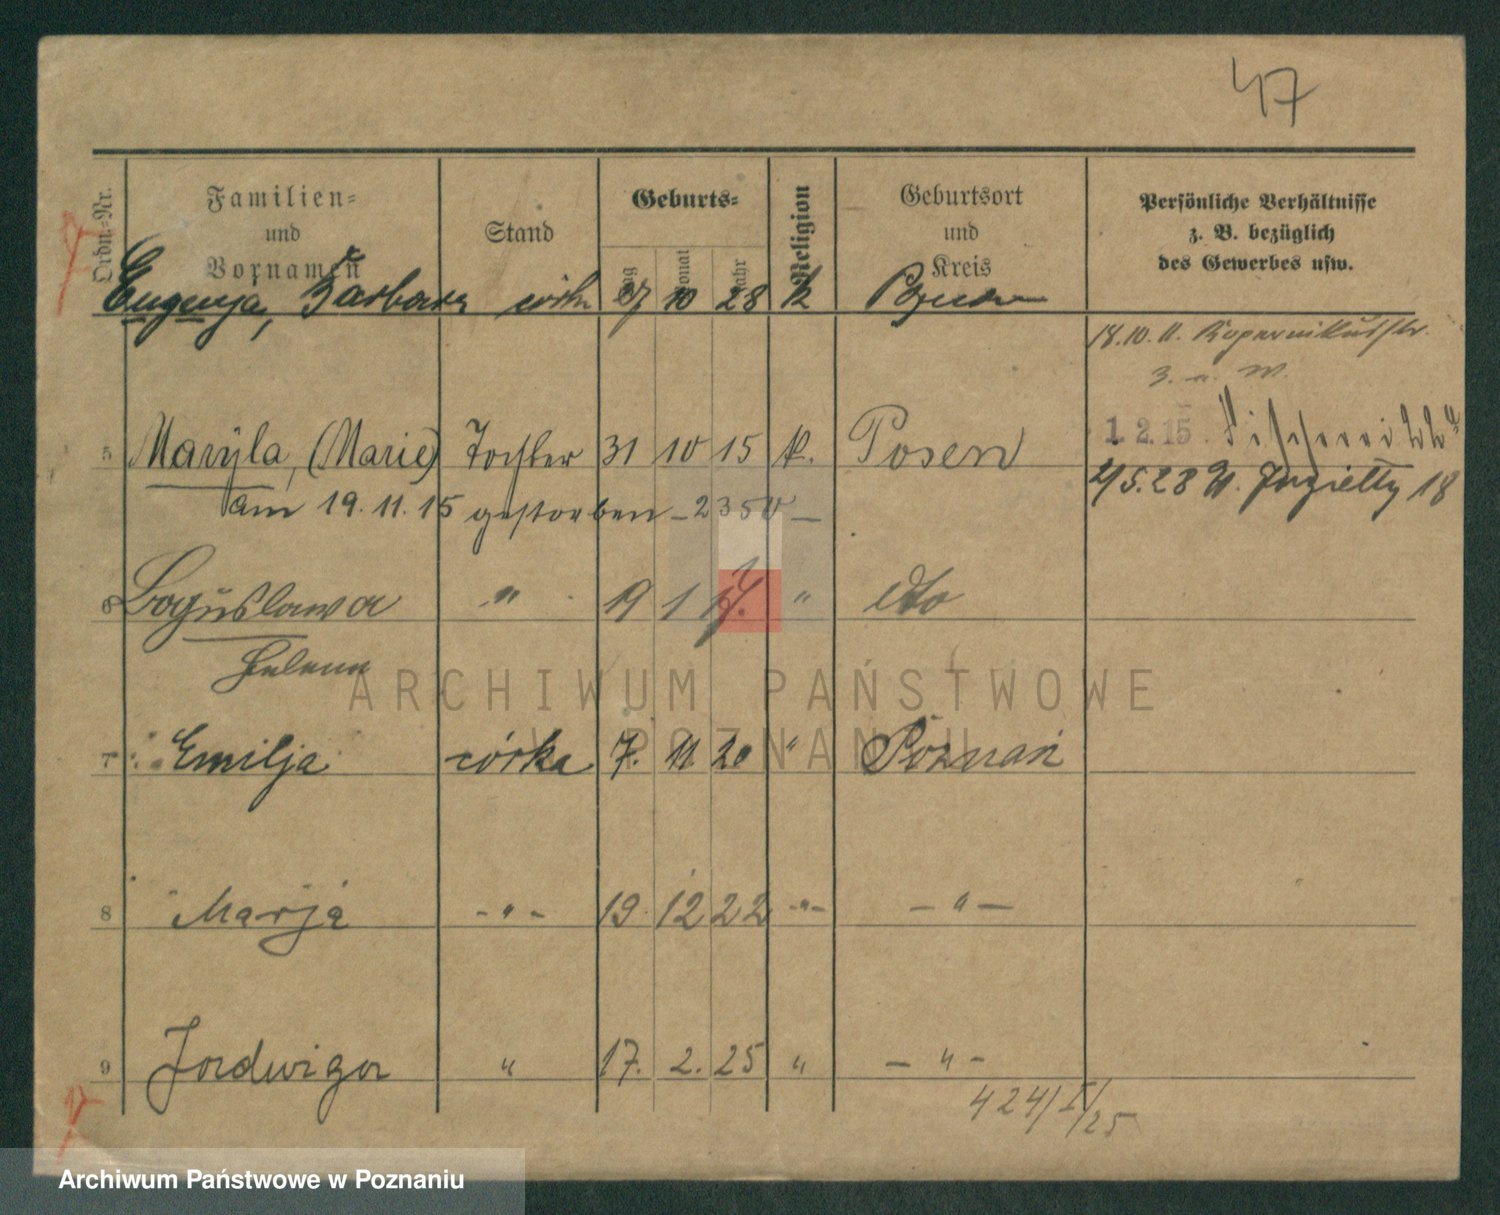 47
Ordn.-Nr. Familien- und Vornamen Stand Geburts- Tag Monat Jahr Religion Geburtsort und Kreis Persönliche Verhältnisse z. B. bezüglich des Gewerbes usw.
Eugenja, Barbara córka 27 10 28 k
18.10.11. Kopernikusstr.
3. a. W.
1. 2. 15.
5 Maryla, (Marie) Tochter 31 10 15 k. Posen
am 19.11.15 gestorben - 2350 -
5.28 18
6 Bogusława " 19 1 17. " dto
Helena
7 Emilja córka 7. 11 20 " Poznań
8 Marja - " - 19. 12 22 - " - - " -
9 Jadwiga " 17. 2. 25 " - " -
424/I/25
ARCHIWUM PAŃSTWOWE
W POZNANIU
Archiwum Państwowe w Poznaniu